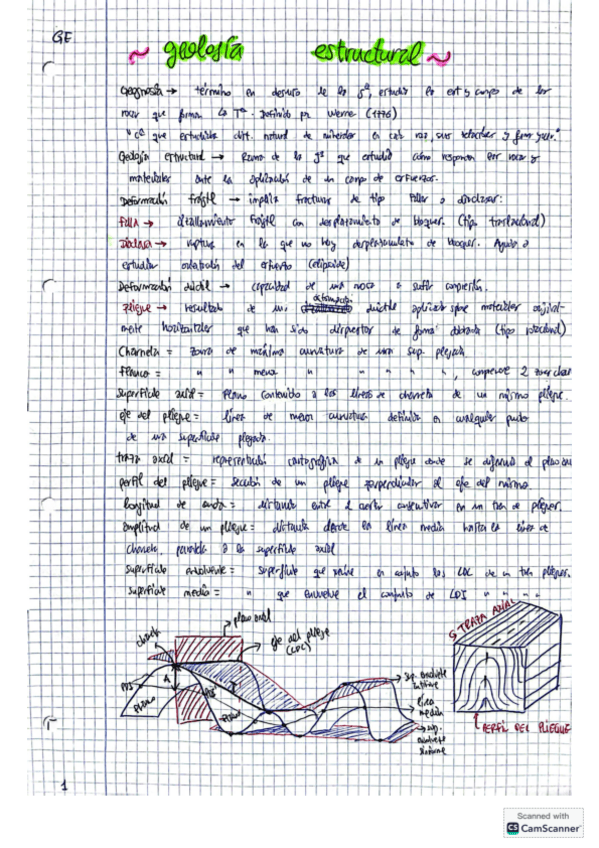 GE
~ geología estructural ~
Geognosia → término en desuso de la
que forma la Tª. Definido por Werner (1776)
que estudiaba dist. natural de minerales en cada roca, sus
Geología estructural → Rama de la gª que estudia cómo responden las rocas y
materiales ante la aplicación de un campo de esfuerzos.
Deformación frágil → implica fracturas de tipo fallas o diaclasas:
Falla → cizallamiento frágil con desplazamiento de bloques. (tipo traslacional)
Diaclasa → ruptura en la que no hay desplazamiento de bloques. Ayuda a
estudiar orientación del esfuerzo (elipsoide)
Deformación dúctil → capacidad de una roca a sufrir compresión.
Pliegue → resultado de una deformación dúctil aplicada sobre materiales original-
mente horizontales que han sido dispuestos de forma doblada (tipo rotacional)
Charnela = zona de máxima curvatura de una sup. plegada.
Flanco = " " menor " " " " ", comprende 2 zonas char
Superficie axial = Plano contenido a las líneas de charnela de un mismo pliegue.
eje del pliegue = línea de mayor curvatura definida en cualquier punto
de una superficie plegada.
traza axial = representación cartográfica de un pliegue donde se el plano axi
perfil del pliegue = sección de un pliegue perpendicular al eje del mismo.
longitud de onda = distancia entre 2 crestas consecutivas en un tren de pliegues.
amplitud de un pliegue = distancia desde la línea media hasta la línea de
charnela, paralela a la superficie axial
superficie envolvente = superficie que reúne en conjunto las LDC de un tren pliegues.
superficie media = " que envuelve el conjunto de LDI " " " "
charnela
plano axial
eje del pliegue
(LDC)
S TRAZA AXIAL
sup. envolvente
línea
media
A
PDI
FLANCO
FLANCO
sup.
envolvente
PERFIL DEL PLIEGUE
1
Scanned with
CS CamScanner